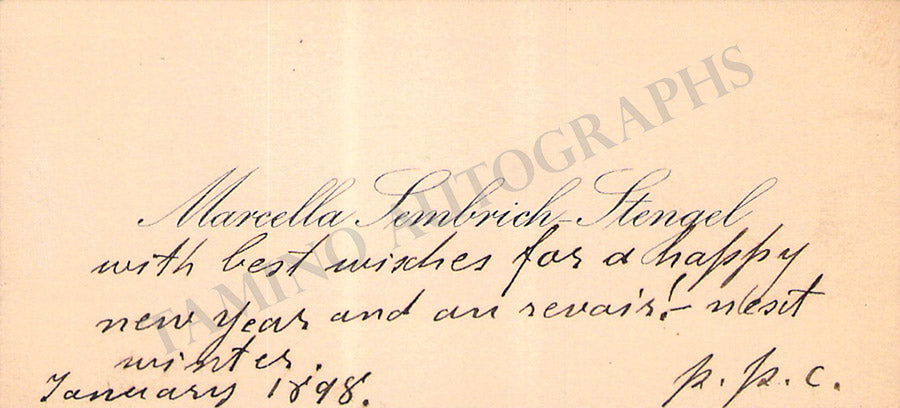 Marcella Sembrich-Stengel
with best wisches for a happy
new year and au revoir!- next
winter.
January 1898.
p. p. c.
TAMINO AUTOGRAPHS